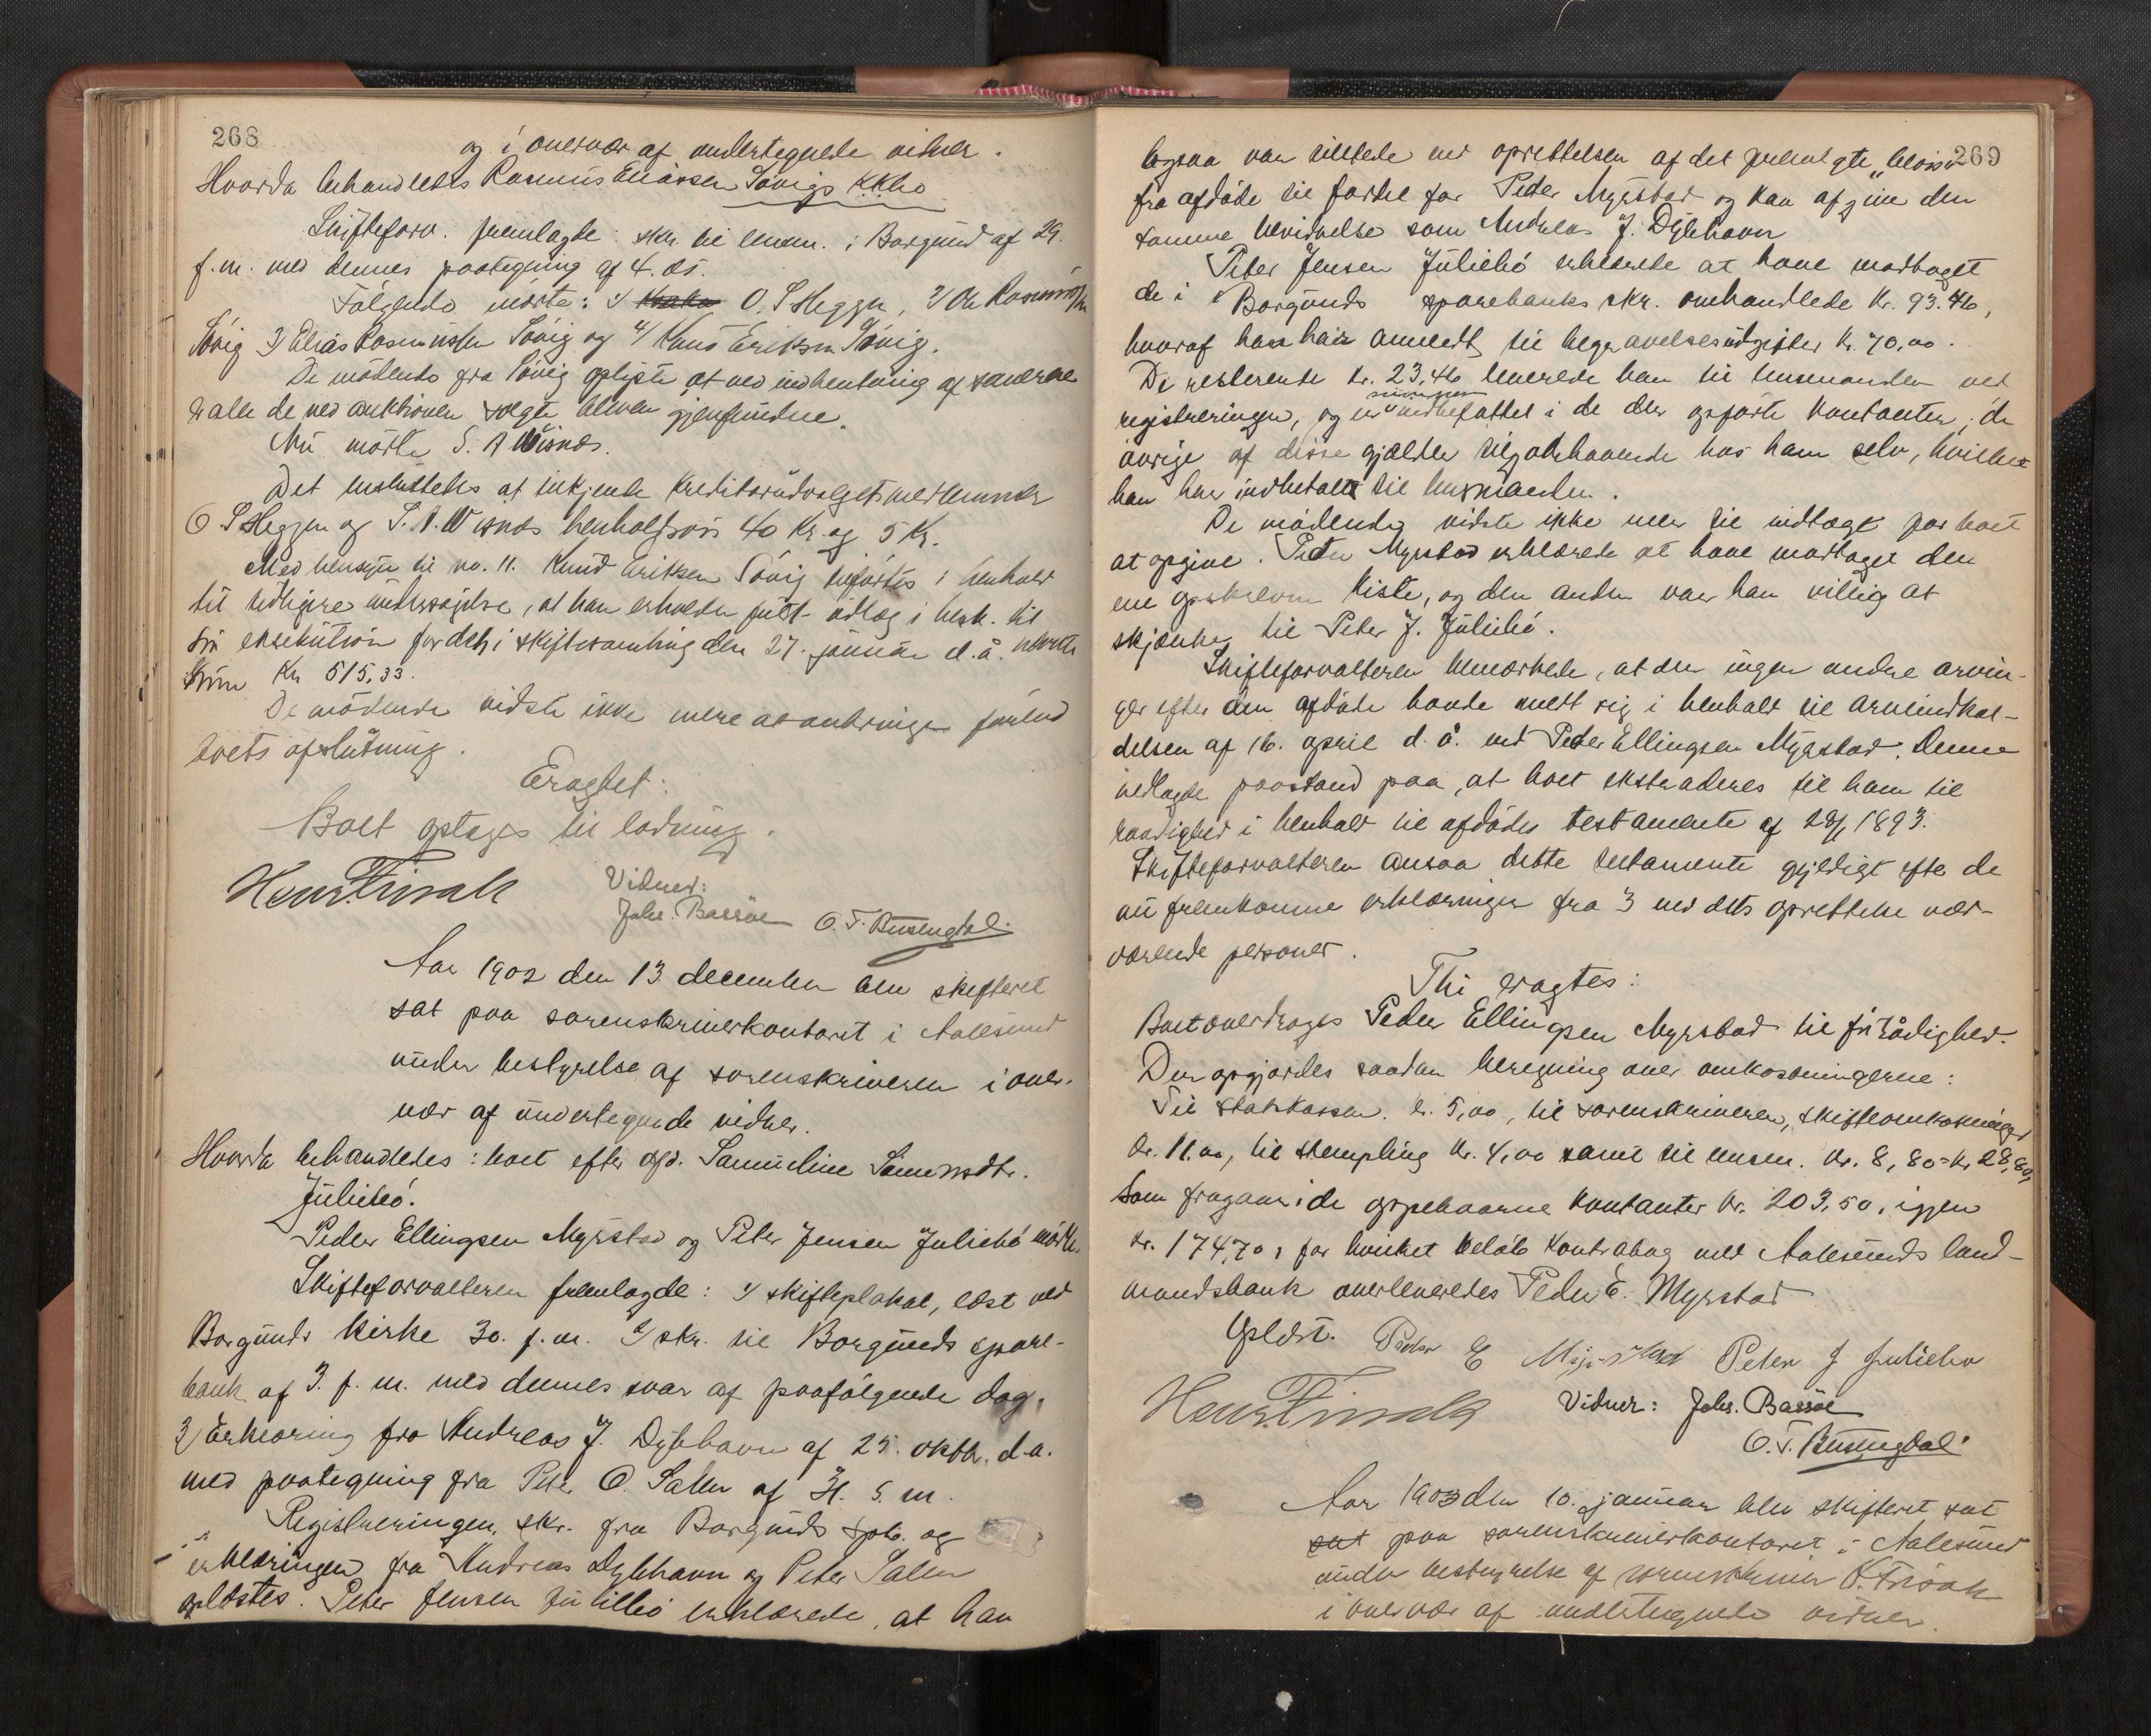 268
og i overvær af undertegnede vidner.
Hvorda behandledes Rasmus Eliassen Søvigs KKbo
Skifteforv. fremlagte: skr. til lensm. i Borgund af 29.
f.m. med dennes paategning af 4. ds.
Følgende mødte: 1/ O. S Heggen, 2/ Ole Rasmuss.
Søvig 3/ Elias Rasmussen Søvig og 4/ Knud Eriksen Søvig.
De mødende fra Søvig oplyste at ved indhentning af
er alle de ved auktionen solgte bleven gjenfundne.
Nu mødte S. A Wisnes.
Det besluttedes at tilkjende Kreditorudvalgets medlemmer
O S Heggen og S. A. Wisnes henholdsvis 40 Kr. og 5 Kr.
Med hensyn til no. 11. Knud Eriksen Søvig tilførtes i henhold
til tidligere undersøgelse, at han erholder fuldt udlæg i henh. til
sin eksekution for den i skiftesamling den 27. januar d.å.
sum Kr 515,33.
De mødende vidste ikke mere at anbringe forend
boets afslutning.
Eragtet:
Boet optages til lodning.
Henr. Finsak
Vidner:
Johs. Bassøe O. T. Busengdal.
Aar 1902 den 13 december blev skifteret
sat paa sorenskriverkontoret i Aalesund
under bestyrelse af sorenskriveren i over-
vær af undertegnede vidner.
Hvorda behandledes: boet efter afd. Samueline Simonsdtr.
Juliebø.
Peder Ellingsen Myrstad og Peter Jensen Juliebø mødte.
Skifteforvalteren fremlagde: 1/ skifteplakat, læst ved
Borgunds kirke 30. f.m. 2/ skr. til Borgunds spare-
bank af 3. f.m. med dennes svar af paafølgende dag,
3/ Erklæring fra Andreas J. Dybhavn af 25. oktbr. d.a.
med paategning fra Peter O. Salen af 31. s.m.
Registreringen, skr. fra Borgunds spb. og
erklæringen fra Andreas Dybhavn og Peter Salen
oplæstes. Peter Jensen Juliebø erklærede, at han
269
ogsaa var tilstede ved oprettelsen af det fremlagte
fra afdøde til fordel for Peder Myrstad og kan afgive den
samme bevidnelse som Andreas J. Dybhavn
Peter Jensen Juliebø erklærede at have modtaget
de i Borgunds sparebanks skr. omhandlede Kr. 93.46,
hvoraf han har anvendt til begravelsesudgifter Kr. 70,00.
De resterende kr. 23,46 leverede han til lensmanden ved
registreringen, og er indbefattet i de der opførte kontanter; de
øvrige af disse gjælder tilgodehavende hos ham selv, hvilket
han har indbetalt til lensmanden.
De mødende vidste ikke mer til indtægt for boet
at opgive. Peder Myrstad erklærede at have modtaget den
ene opskrevne kiste, og den anden var han villig at
skjænke til Peter J. Juliebø.
Skifteforvalteren bemærkede, at der ingen andre arvin-
ger efter den afdøde havde meldt sig i henhold til arveindkal-
delsen af 16. april d.å. end Peder Ellingsen Myrstad. Denne
nedlagde paastand paa, at boet ekstraderes til ham til
raadighed i henhold til afdødes testamente af 28/1 1893.
Skifteforvalteren ansaa dette testamente gyldigt efter de
nu fremkomne erklæringer fra 3 ved dets oprettelse nær-
værende personer.
Thi eragtes:
Boet overdrages Peder Ellingsen Myrstad til fri rådighed.
Der opgjordes saadan beregning over omkostningerne:
Til statskassen. kr. 5,00, til sorenskriveren, skifteomkostninger
kr. 11.00, til stempling kr. 4,00 samt til lensm. kr. 8,80 = Kr 28,80
som fragaar i de oppebaarne kontanter kr. 203,50, igjen
kr. 174,70, for hvilket beløb kontrabog med Aalesunds land-
mandsbank overleveredes Peder E. Myrstad
Oplæst. Peder E Myrstad Peter J Juliebø
Henr. Finsak Vidner: Johs. Bassøe
O. T. Busengdal
Aar 1903 den 10. januar blev skifteret sat
sat paa sorenskriverkontoret i Aalesund
under bestyrelse af sorenskriver
i overvær af undertegnede vidner.